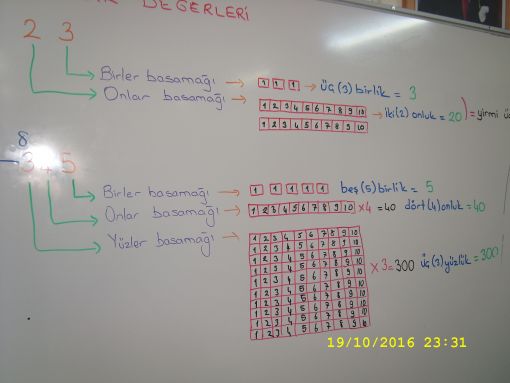 DEĞERLERİ
2 3
Birler basamağı → 1 1 1 → üç (3) birlik = 3
Onlar basamağı → 1 2 3 4 5 6 7 8 9 10 → iki (2) onluk = 20 = yirmi
1 2 3 4 5 6 7 8 9 10
8
3 4 5
Birler basamağı → 1 1 1 1 1 beş (5) birlik = 5
Onlar basamağı → 1 2 3 4 5 6 7 8 9 10 x 4 = 40 dört (4) onluk = 40
Yüzler basamağı → 1 2 3 4 5 6 7 8 9 10
1 2 3 4 5 6 7 8 9 10
1 2 3 4 5 6 7 8 9 10
1 2 3 4 5 6 7 8 9 10 x 3 = 300 üç (3) yüzlük = 300
1 2 3 4 5 6 7 8 9 10
1 2 3 4 5 6 7 8 9 10
1 2 3 4 5 6 7 8 9 10
1 2 3 4 5 6 7 8 9 10
1 2 3 4 5 6 7 8 9 10
1 2 3 4 5 6 7 8 9 10
19/10/2016 23:31